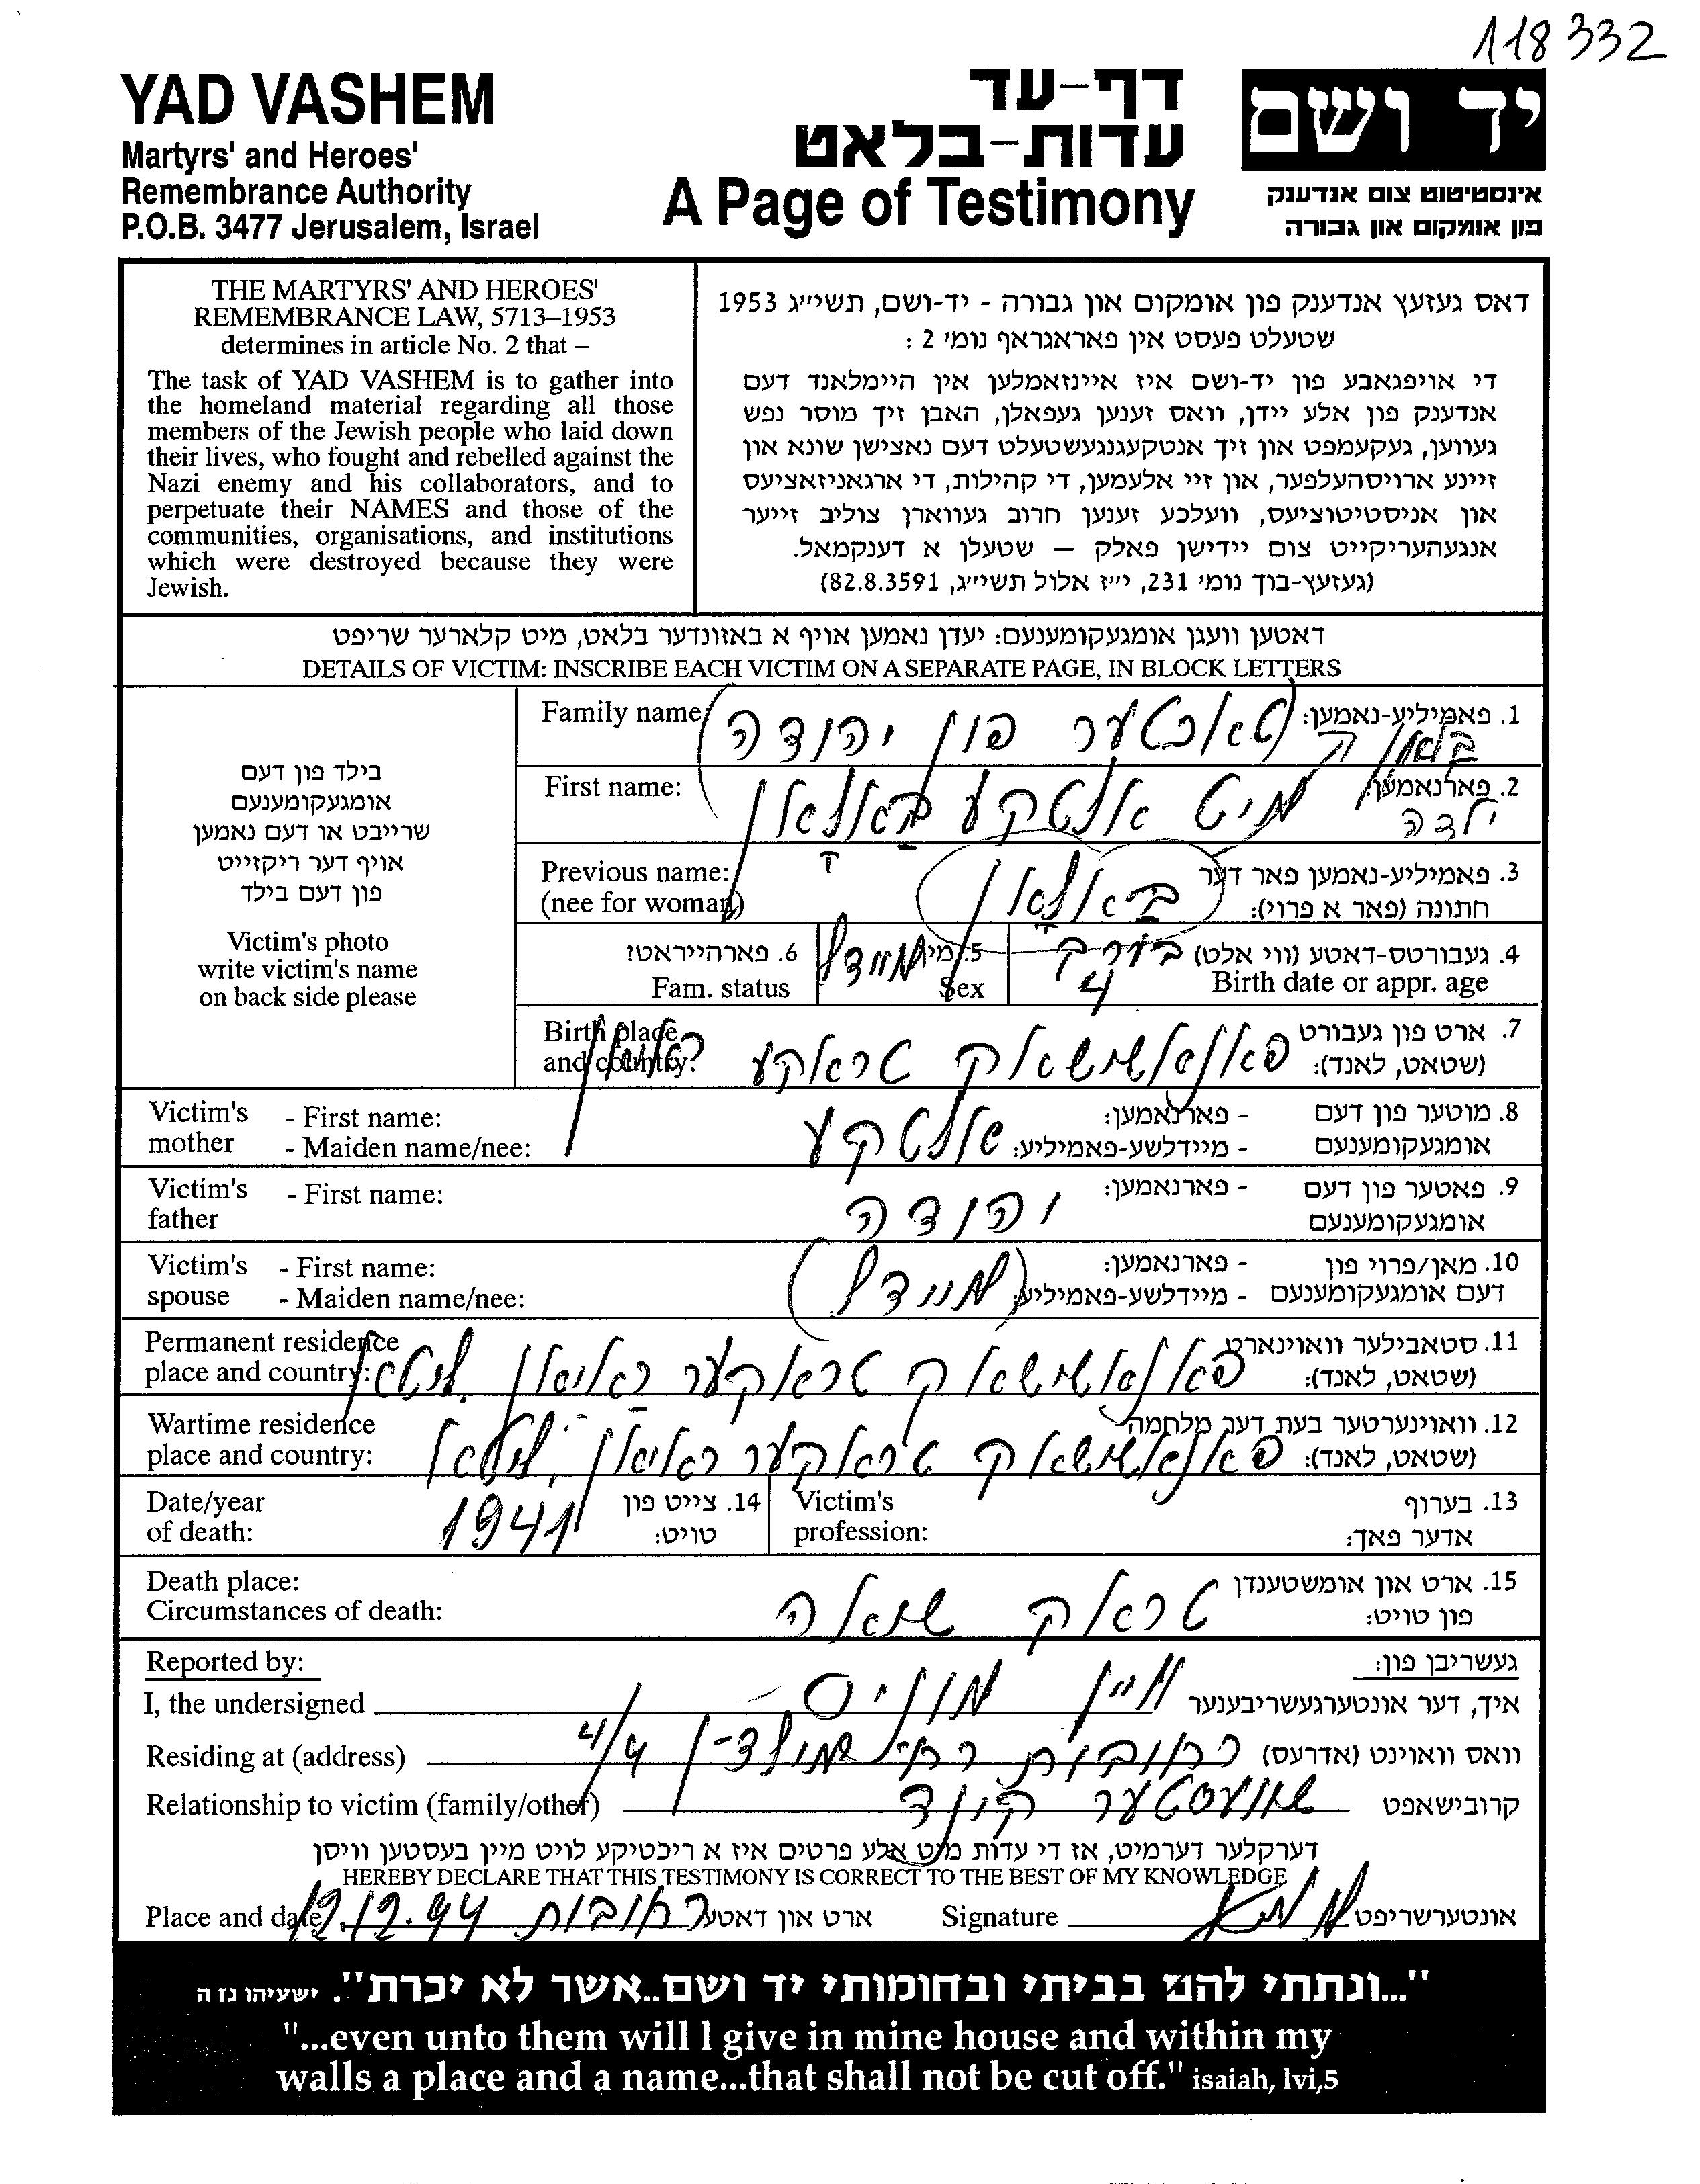 118332
YAD VASHEM
Martyrs' and Heroes'
Remembrance Authority
P.O.B. 3477 Jerusalem, Israel
דף-עד
עדות-בלאט
A Page of Testimony
יד ושם
אינסטיטוט צום אנדענק
פון אומקום און גבורה
THE MARTYRS' AND HEROES'
REMEMBRANCE LAW, 5713–1953
determines in article No. 2 that –
The task of YAD VASHEM is to gather into
the homeland material regarding all those
members of the Jewish people who laid down
their lives, who fought and rebelled against the
Nazi enemy and his collaborators, and to
perpetuate their NAMES and those of the
communities, organisations, and institutions
which were destroyed because they were
Jewish.
דאס געזעץ אנדענק פון אומקום און גבורה - יד-ושם, תשי״ג 1953
שטעלט פעסט אין פאראגראף נומ׳ 2 :
די אויפגאבע פון יד-ושם איז איינזאמלען אין היימלאנד דעם
אנדענק פון אלע יידן, וואס זענען געפאלן, האבן זיך מוסר נפש
געווען, געקעמפט און זיך אנטקעגנגעשטעלט דעם נאצישן שונא און
זיינע ארויסהעלפער, און זיי אלעמען, די קהילות, די ארגאניזאציעס
און אניסטיטוציעס, וועלכע זענען חרוב געווארן צוליב זייער
אנגעהעריקייט צום יידישן פאלק — שטעלן א דענקמאל.
(געזעץ-בוך נומ׳ 231, י״ז אלול תשי״ג, 82.8.3591)
דאטען וועגן אומגעקומענעם: יעדן נאמען אויף א באזונדער בלאט, מיט קלארער שריפט
DETAILS OF VICTIM: INSCRIBE EACH VICTIM ON A SEPARATE PAGE, IN BLOCK LETTERS
בילד פון דעם
אומגעקומענעם
שרייבט או דעם נאמען
אויף דער ריקזייט
פון דעם בילד
Victim's photo
write victim's name
on back side please
Family name: (טאכטער פון יהודה 1. פאמיליע-נאמען:
First name: מיט אלטקע 2. פארנאמען:
ילדה
Previous name: 3. פאמיליע-נאמען פאר דער
(nee for woman) חתונה (פאר א פרוי):
6. פארהייראט? מיידל 5. מין 4. געבורטס-דאטע (ווי אלט)
Fam. status Sex 4 Birth date or appr. age
Birth place 7. ארט פון געבורט
and country: טראקע ראיאן (שטאט, לאנד):
Victim's - First name: - פארנאמען: 8. מוטער פון דעם
mother - Maiden name/nee: אלטקע - מיידלשע-פאמיליע: אומגעקומענעם
Victim's - First name: - פארנאמען: 9. פאטער פון דעם
father יהודה אומגעקומענעם
Victim's - First name: - פארנאמען: 10. מאן/פרוי פון
spouse - Maiden name/nee: (מיידל) - מיידלשע-פאמיליע: דעם אומגעקומענעם
Permanent residence 11. סטאבילער וואוינארט
place and country: טראקער ראיאן, ליטא (שטאט, לאנד):
Wartime residence 12. וואוינערטער בעת דער מלחמה
place and country: טראקער ראיאן, ליטא (שטאט, לאנד):
Date/year 1941 14. צייט פון Victim's 13. בערוף
of death: טויט: profession: אדער פאך:
Death place: טראק שואה 15. ארט און אומשטענדן
Circumstances of death: פון טויט:
Reported by: געשריבן פון:
I, the undersigned וויין מוניס איך, דער אונטערגעשריבענער
Residing at (address) רחובות 4/4 וואס וואוינט (אדרעס)
Relationship to victim (family/other) שוועסטער קינד קרובישאפט
דערקלער דערמיט, אז די עדות מיט אלע פרטים איז א ריכטיקע לויט מיין בעסטען וויסן
HEREBY DECLARE THAT THIS TESTIMONY IS CORRECT TO THE BEST OF MY KNOWLEDGE
Place and date 12.12.94 רחובות ארט און דאטע Signature אונטערשריפט
"...ונתתי להם בביתי ובחומותי יד ושם..אשר לא יכרת". ישעיהו נז ה
"...even unto them will I give in mine house and within my
walls a place and a name...that shall not be cut off." isaiah, lvi,5